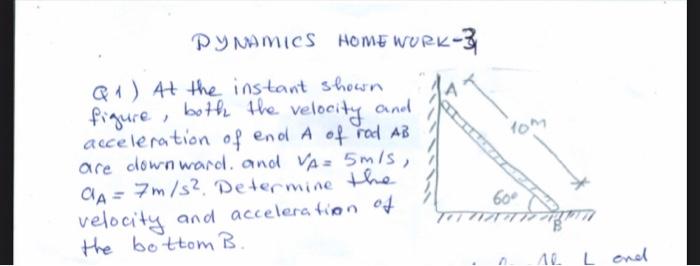 DYNAMICS HOMEWORK-3
Q1) At the instant shown
figure, both the velocity and
acceleration of end A of rod AB
are downward. and VA = 5m/s,
aA = 7m/s². Determine the
velocity and acceleration of
the bottom B.
A
10m
60°
B
L and